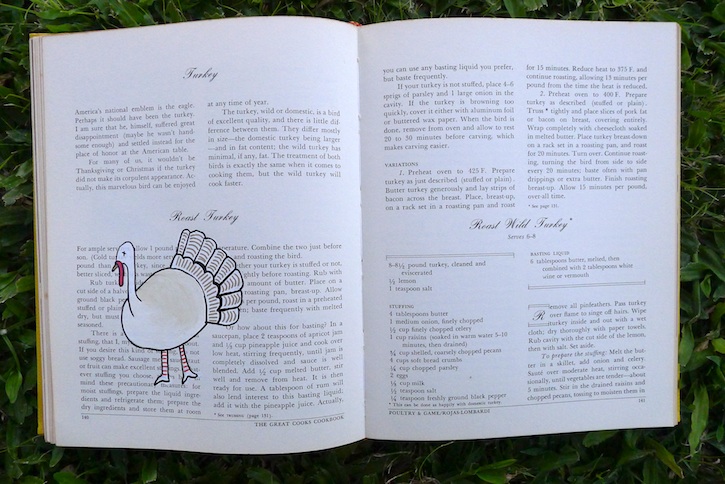 Turkey
America's national emblem is the eagle.
Perhaps it should have been the turkey.
I am sure that he, himself, suffered great
disappointment (maybe he wasn't hand-
some enough) and settled instead for the
place of honor at the American table.
For many of us, it wouldn't be
Thanksgiving or Christmas if the turkey
did not make its corpulent appearance. Ac-
tually, this marvelous bird can be enjoyed
at any time of year.
The turkey, wild or domestic, is a bird
of excellent quality, and there is little dif-
ference between them. They differ mostly
in size—the domestic turkey being larger
—and in fat content; the wild turkey has
minimal, if any, fat. The treatment of both
birds is exactly the same when it comes to
cooking them, but the wild turkey will
cook faster.
Roast Turkey
For ample serv allow 1 pound
son. (Cold
pound than turkey, since
better sliced,
Rub
cut side of a
ground black
stuffed or plain
or dry, but
seasoned.
There is
stuffing, that I,
If you desire this kind
use soggy bread. Sausage
or fruit can make excellent
ever stuffing you choose,
mind these precautionary measures: for
most stuffings, prepare the liquid ingre-
dients and refrigerate them; prepare the
dry ingredients and store them at room
temperature. Combine the two just before
and roasting the bird.
your turkey is stuffed or not,
before roasting. Rub with
amount of butter. Place on a
roasting pan, breast-up. Allow
per pound, roast in a preheated
baste frequently with melted
Or how about this for basting? In a
saucepan, place 2 teaspoons of apricot jam
and ½ cup pineapple juice and cook over
low heat, stirring frequently, until jam is
completely dissolved and sauce is well
blended. Add ½ cup melted butter, stir
well and remove from heat. It is then
ready for use. A tablespoon of rum will
also lend interest to this basting liquid.
add it with the pineapple juice. Actually,
140
THE GREAT COOKS COOKBOOK
you can use any basting liquid you prefer,
but baste frequently.
If your turkey is not stuffed, place 4–6
sprigs of parsley and 1 large onion in the
cavity. If the turkey is browning too
quickly, cover it either with aluminum foil
or buttered wax paper. When the bird is
done, remove from oven and allow to rest
20 to 30 minutes before carving, which
makes carving easier.
VARIATIONS
1. Preheat oven to 425 F. Prepare
turkey as just described (stuffed or plain).
Butter turkey generously and lay strips of
bacon across the breast. Place, breast-up,
on a rack set in a roasting pan and roast
for 15 minutes. Reduce heat to 375 F. and
continue roasting, allowing 13 minutes per
pound from the time the heat is reduced.
2. Preheat oven to 400 F. Prepare
turkey as described (stuffed or plain).
Truss * tightly and place slices of pork fat
or bacon on breast, covering entirely.
Wrap completely with cheesecloth soaked
in melted butter. Place turkey breast-down
on a rack set in a roasting pan, and roast
for 20 minutes. Turn over. Continue roast-
ing, turning the bird from side to side
every 20 minutes; baste often with pan
drippings or extra butter. Finish roasting
breast-up. Allow 15 minutes per pound,
over-all time.
Roast Wild Turkey*
Serves 6–8
8–8½ pound turkey, cleaned and
eviscerated
½ lemon
1 teaspoon salt
STUFFING
4 tablespoons butter
1 medium onion, finely chopped
½ cup finely chopped celery
1 cup raisins (soaked in warm water 5–10
minutes, then drained)
¾ cup shelled, coarsely chopped pecans
4 cups soft bread crumbs
¼ cup chopped parsley
2 eggs
½ cup milk
½ teaspoon salt
¼ teaspoon freshly ground black pepper
BASTING LIQUID
6 tablespoons butter, melted, then
combined with 2 tablespoons white
wine or vermouth
Remove all pinfeathers. Pass turkey
over flame to singe off hairs. Wipe
turkey inside and out with a wet
cloth; dry thoroughly with paper towels.
Rub cavity with the cut side of the lemon,
then with salt. Set aside.
To prepare the stuffing: Melt the but-
ter in a skillet, add onion and celery.
Sauté over moderate heat, stirring occa-
sionally, until vegetables are tender—about
5 minutes. Stir in the drained raisins and
chopped pecans, tossing to moisten them in
POULTRY & GAME/ROJAS-LOMBARDI
141